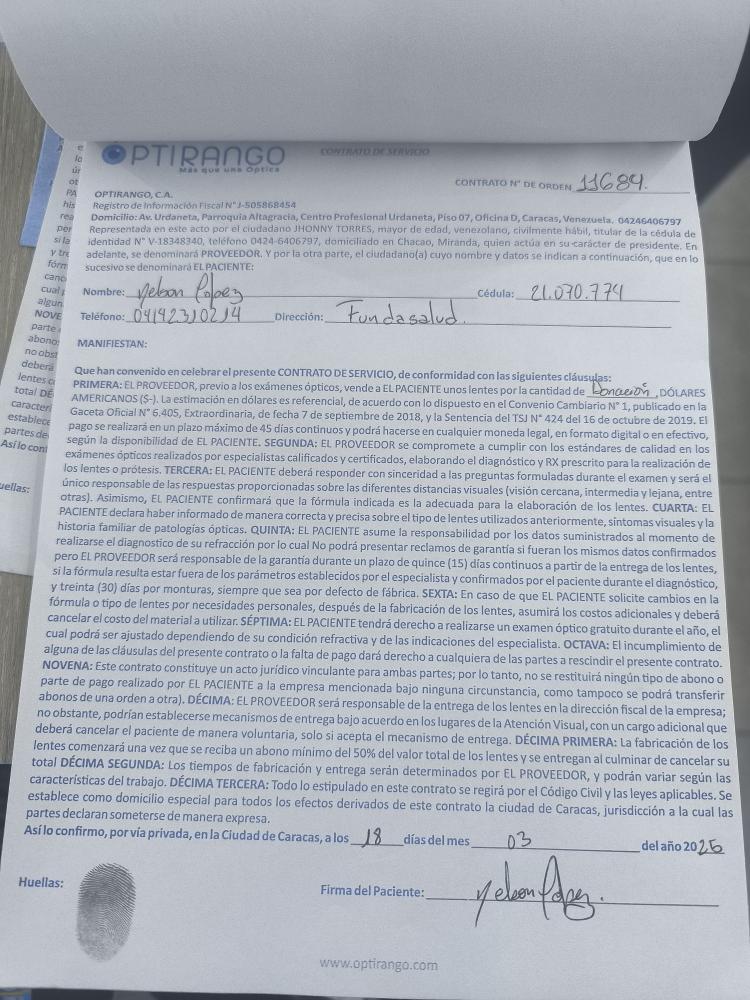 OPTIRANGO
Más que una Óptica
CONTRATO DE SERVICIO
CONTRATO N° DE ORDEN 11684.
OPTIRANGO, C.A.
Registro de Información Fiscal N° J-505868454
Domicilio: Av. Urdaneta, Parroquia Altagracia, Centro Profesional Urdaneta, Piso 07, Oficina D, Caracas, Venezuela. 04246406797
Representada en este acto por el ciudadano JHONNY TORRES, mayor de edad, venezolano, civilmente hábil, titular de la cédula de
identidad N° V-18348340, teléfono 0424-6406797, domiciliado en Chacao, Miranda, quien actúa en su carácter de presidente. En
adelante, se denominará PROVEEDOR. Y por la otra parte, el ciudadano(a) cuyo nombre y datos se indican a continuación, que en lo
sucesivo se denominará EL PACIENTE:
Nombre: Nelson López Cédula: 21.070.774
Teléfono: 04142310214 Dirección: Fundasalud.
MANIFIESTAN:
Que han convenido en celebrar el presente CONTRATO DE SERVICIO, de conformidad con las siguientes cláusulas:
PRIMERA: EL PROVEEDOR, previo a los exámenes ópticos, vende a EL PACIENTE unos lentes por la cantidad de Donación, DÓLARES
AMERICANOS ($-). La estimación en dólares es referencial, de acuerdo con lo dispuesto en el Convenio Cambiario N° 1, publicado en la
Gaceta Oficial N° 6.405, Extraordinaria, de fecha 7 de septiembre de 2018, y la Sentencia del TSJ N° 424 del 16 de octubre de 2019. El
pago se realizará en un plazo máximo de 45 días continuos y podrá hacerse en cualquier moneda legal, en formato digital o en efectivo,
según la disponibilidad de EL PACIENTE. SEGUNDA: EL PROVEEDOR se compromete a cumplir con los estándares de calidad en los
exámenes ópticos realizados por especialistas calificados y certificados, elaborando el diagnóstico y RX prescrito para la realización de
los lentes o prótesis. TERCERA: EL PACIENTE deberá responder con sinceridad a las preguntas formuladas durante el examen y será el
único responsable de las respuestas proporcionadas sobre las diferentes distancias visuales (visión cercana, intermedia y lejana, entre
otras). Asimismo, EL PACIENTE confirmará que la fórmula indicada es la adecuada para la elaboración de los lentes. CUARTA: EL
PACIENTE declara haber informado de manera correcta y precisa sobre el tipo de lentes utilizados anteriormente, síntomas visuales y la
historia familiar de patologías ópticas. QUINTA: EL PACIENTE asume la responsabilidad por los datos suministrados al momento de
realizarse el diagnostico de su refracción por lo cual No podrá presentar reclamos de garantía si fueran los mismos datos confirmados
pero EL PROVEEDOR será responsable de la garantía durante un plazo de quince (15) días continuos a partir de la entrega de los lentes,
si la fórmula resulta estar fuera de los parámetros establecidos por el especialista y confirmados por el paciente durante el diagnóstico,
y treinta (30) días por monturas, siempre que sea por defecto de fábrica. SEXTA: En caso de que EL PACIENTE solicite cambios en la
fórmula o tipo de lentes por necesidades personales, después de la fabricación de los lentes, asumirá los costos adicionales y deberá
cancelar el costo del material a utilizar. SÉPTIMA: EL PACIENTE tendrá derecho a realizarse un examen óptico gratuito durante el año, el
cual podrá ser ajustado dependiendo de su condición refractiva y de las indicaciones del especialista. OCTAVA: El incumplimiento de
alguna de las cláusulas del presente contrato o la falta de pago dará derecho a cualquiera de las partes a rescindir el presente contrato.
NOVENA: Este contrato constituye un acto jurídico vinculante para ambas partes; por lo tanto, no se restituirá ningún tipo de abono o
parte de pago realizado por EL PACIENTE a la empresa mencionada bajo ninguna circunstancia, como tampoco se podrá transferir
abonos de una orden a otra). DÉCIMA: EL PROVEEDOR será responsable de la entrega de los lentes en la dirección fiscal de la empresa;
no obstante, podrían establecerse mecanismos de entrega bajo acuerdo en los lugares de la Atención Visual, con un cargo adicional que
deberá cancelar el paciente de manera voluntaria, solo si acepta el mecanismo de entrega. DÉCIMA PRIMERA: La fabricación de los
lentes comenzará una vez que se reciba un abono mínimo del 50% del valor total de los lentes y se entregan al culminar de cancelar su
total DÉCIMA SEGUNDA: Los tiempos de fabricación y entrega serán determinados por EL PROVEEDOR, y podrán variar según las
características del trabajo. DÉCIMA TERCERA: Todo lo estipulado en este contrato se regirá por el Código Civil y las leyes aplicables. Se
establece como domicilio especial para todos los efectos derivados de este contrato la ciudad de Caracas, jurisdicción a la cual las
partes declaran someterse de manera expresa.
Así lo confirmo, por vía privada, en la Ciudad de Caracas, a los 18 días del mes 03 del año 2025
Huellas:
Firma del Paciente: Nelson López.
www.optirango.com